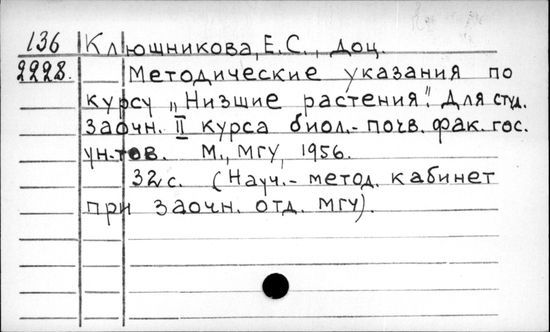 136 Клюшникова, Е.С., доц.
2228. Методические указания по
курсу „Низшие растения". Для студ.
заочн. II курса биол.-почв. фак. гос.
ун-тов. М., МГУ, 1956.
32 с. (Науч.-метод. кабинет
при заочн. отд. МГУ).